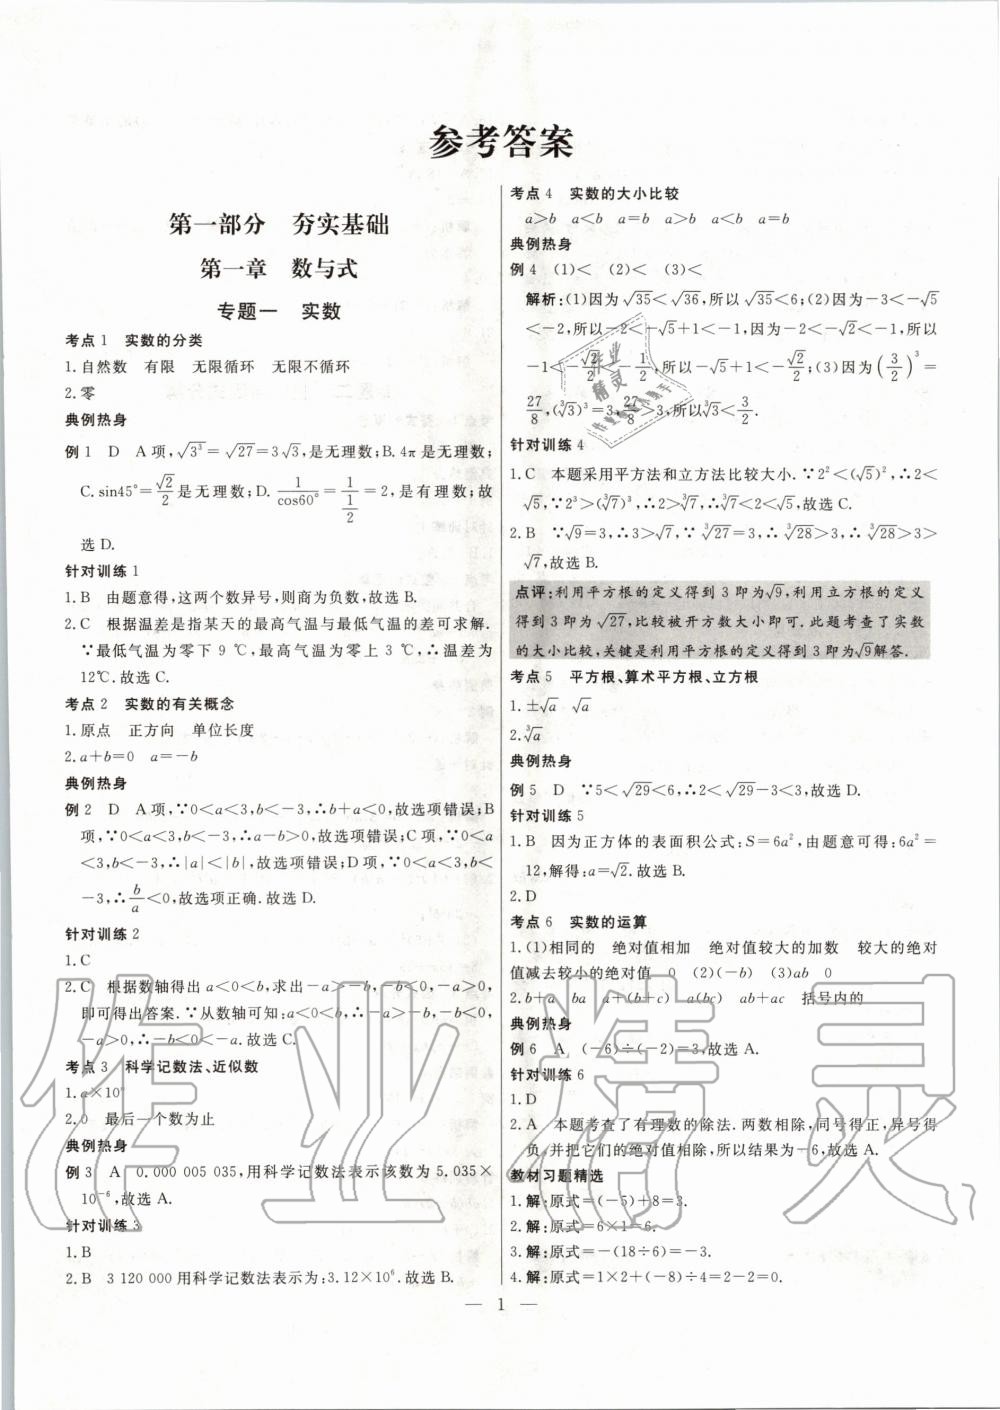 参考答案
第一部分 夯实基础
第一章 数与式
专题一 实数
考点1 实数的分类
1.自然数 有限 无限循环 无限不循环
2.零
典例热身
例1 D A项,√3³=√27=3√3,是无理数;B.4π是无理数;
C.sin45°=√2/2是无理数;D.1/cos60°=1/(1/2)=2,是有理数;故
选D.
针对训练1
1.B 由题意得,这两个数异号,则商为负数,故选B.
2.C 根据温差是指某天的最高气温与最低气温的差可求解.
∵最低气温为零下9 ℃,最高气温为零上3 ℃,∴温差为
12℃.故选C.
考点2 实数的有关概念
1.原点 正方向 单位长度
2.a+b=0 a=-b
典例热身
例2 D A项,∵0<a<3,b<-3,∴b+a<0,故选项错误;B
项,∵0<a<3,b<-3,∴a-b>0,故选项错误;C项,∵0<a
<3,b<-3,∴|a|<|b|,故选项错误;D项,∵0<a<3,b<
-3,∴b/a<0,故选项正确.故选D.
针对训练2
1.C
2.C 根据数轴得出a<0<b,求出-a>-b,-b<0,-a>0,
即可得出答案.∵从数轴可知:a<0<b,∴-a>-b,-b<0,
-a>0,∴-b<0<-a.故选C.
考点3 科学记数法、近似数
1.a×10ⁿ
2.0 最后一个数为止
典例热身
例3 A 0.000 005 035,用科学记数法表示该数为5.035×
10⁻⁶,故选A.
针对训练3
1.B
2.B 3 120 000用科学记数法表示为:3.12×10⁶.故选B.
考点4 实数的大小比较
a>b a<b a=b a>b a<b a=b
典例热身
例4 (1)< (2)< (3)<
解析:(1)因为√35<√36,所以√35<6;(2)因为-3<-√5
<-2,所以-2<-√5+1<-1.因为-2<-√2<-1,所以
-1<-√2/2<-1/2,所以-√5+1<-√2/2;(3)因为(3/2)³=
27/8,(∛3)³=3,27/8>3,所以∛3<3/2.
针对训练4
1.C 本题采用平方法和立方法比较大小.∵2²<(√5)²,∴2<
√5,∵2³>(∛7)³,∴2>∛7,∴∛7<2<√5,故选C.
2.B ∵√9=3,∴3>√7,∵∛27=3,∴∛28>3,∴∛28>3>
√7,故选B.
点评:利用平方根的定义得到3即为√9,利用立方根的定义
得到3即为∛27,比较被开方数大小即可.此题考查了实数
的大小比较,关键是利用平方根的定义得到3即为√9解答.
考点5 平方根、算术平方根、立方根
1.±√a √a
2.∛a
典例热身
例5 D ∵5<√29<6,∴2<√29-3<3,故选D.
针对训练5
1.B 因为正方体的表面积公式:S=6a²,由题意可得:6a²=
12,解得:a=√2.故选B.
2.D
考点6 实数的运算
1.(1)相同的 绝对值相加 绝对值较大的加数 较大的绝对
值减去较小的绝对值 0 (2)(-b) (3)ab 0
2.b+a ba a+(b+c) a(bc) ab+ac 括号内的
典例热身
例6 A (-6)÷(-2)=3,故选A.
针对训练6
1.D
2.A 本题考查了有理数的除法.两数相除,同号得正,异号得
负,并把它们的绝对值相除,所以结果为-6,故选A.
教材习题精选
1.解:原式=(-5)+8=3.
2.解:原式=6×1=6.
3.解:原式=-(18÷6)=-3.
4.解:原式=1×2+(-8)÷4=2-2=0.
— 1 —
作业精灵
作业精灵